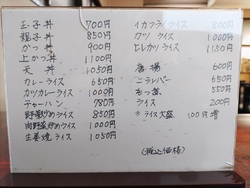 玉子丼 700円
親子丼 850円
かつ丼 900円
上かつ丼 1100円
天丼 1050円
カレーライス 650円
カツカレーライス 1000円
チャーハン 780円
野菜炒めライス 850円
肉野菜炒めライス 1000円
生姜焼ライス 1050円
イカフライライス 800円
カツライス 1000円
ヒレカツライス 1150円
唐揚 600円
ニラレバー 650円
もつ煮 550円
ライス 200円
*ライス大盛 100円増
(税込価格)